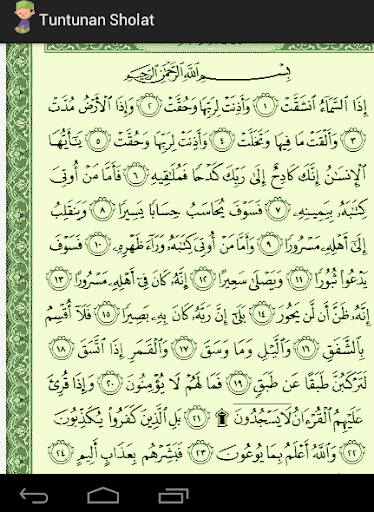 Tuntunan Sholat
بِسْمِ ٱللَّهِ ٱلرَّحْمَٰنِ ٱلرَّحِيمِ
إِذَا ٱلسَّمَآءُ ٱنشَقَّتْ ١ وَأَذِنَتْ لِرَبِّهَا وَحُقَّتْ ٢ وَإِذَا ٱلْأَرْضُ مُدَّتْ
٣ وَأَلْقَتْ مَا فِيهَا وَتَخَلَّتْ ٤ وَأَذِنَتْ لِرَبِّهَا وَحُقَّتْ ٥ يَٰٓأَيُّهَا
ٱلْإِنسَٰنُ إِنَّكَ كَادِحٌ إِلَىٰ رَبِّكَ كَدْحًا فَمُلَٰقِيهِ ٦ فَأَمَّا مَنْ أُوتِىَ
كِتَٰبَهُۥ بِيَمِينِهِۦ ٧ فَسَوْفَ يُحَاسَبُ حِسَابًا يَسِيرًا ٨ وَيَنقَلِبُ
إِلَىٰٓ أَهْلِهِۦ مَسْرُورًا ٩ وَأَمَّا مَنْ أُوتِىَ كِتَٰبَهُۥ وَرَآءَ ظَهْرِهِۦ ١٠ فَسَوْفَ
يَدْعُوا۟ ثُبُورًا ١١ وَيَصْلَىٰ سَعِيرًا ١٢ إِنَّهُۥ كَانَ فِىٓ أَهْلِهِۦ مَسْرُورًا ١٣
إِنَّهُۥ ظَنَّ أَن لَّن يَحُورَ ١٤ بَلَىٰٓ إِنَّ رَبَّهُۥ كَانَ بِهِۦ بَصِيرًا ١٥ فَلَآ أُقْسِمُ
بِٱلشَّفَقِ ١٦ وَٱلَّيْلِ وَمَا وَسَقَ ١٧ وَٱلْقَمَرِ إِذَا ٱتَّسَقَ ١٨
لَتَرْكَبُنَّ طَبَقًا عَن طَبَقٍ ١٩ فَمَا لَهُمْ لَا يُؤْمِنُونَ ٢٠ وَإِذَا قُرِئَ
عَلَيْهِمُ ٱلْقُرْءَانُ لَا يَسْجُدُونَ ۩ ٢١ بَلِ ٱلَّذِينَ كَفَرُوا۟ يُكَذِّبُونَ
٢٢ وَٱللَّهُ أَعْلَمُ بِمَا يُوعُونَ ٢٣ فَبَشِّرْهُم بِعَذَابٍ أَلِيمٍ ٢٤